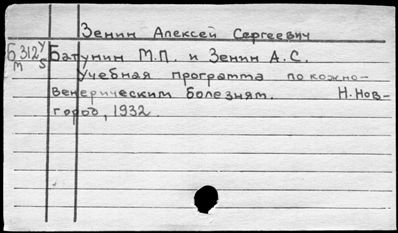 Зенин Алексей Сергеевич
Б 312 У Батунин М.П. и Зенин А.С.
М 5 Учебная программа по кожно-
венерическим болезням. Н.Нов-
город, 1932.